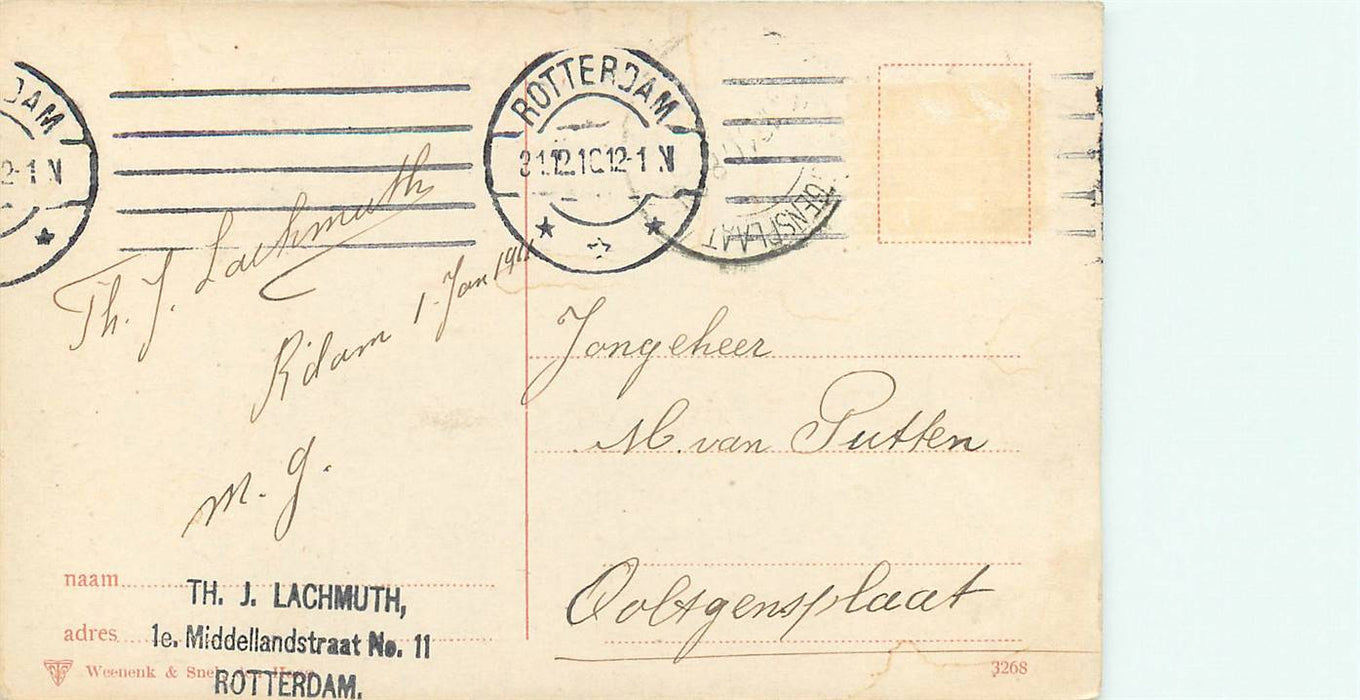 ROTTERDAM
31.12.10 12-1 N
DAM
2-1 N
GENSPLAAT
Th. J. Lachmuth
R'dam 1. Jan 1911
m. g.
Jongeheer
M. van Putten
Ooltgensplaat
naam
TH. J. LACHMUTH,
adres
1e. Middellandstraat No. 11
ROTTERDAM.
Weenenk & Snel, den Haag
3268